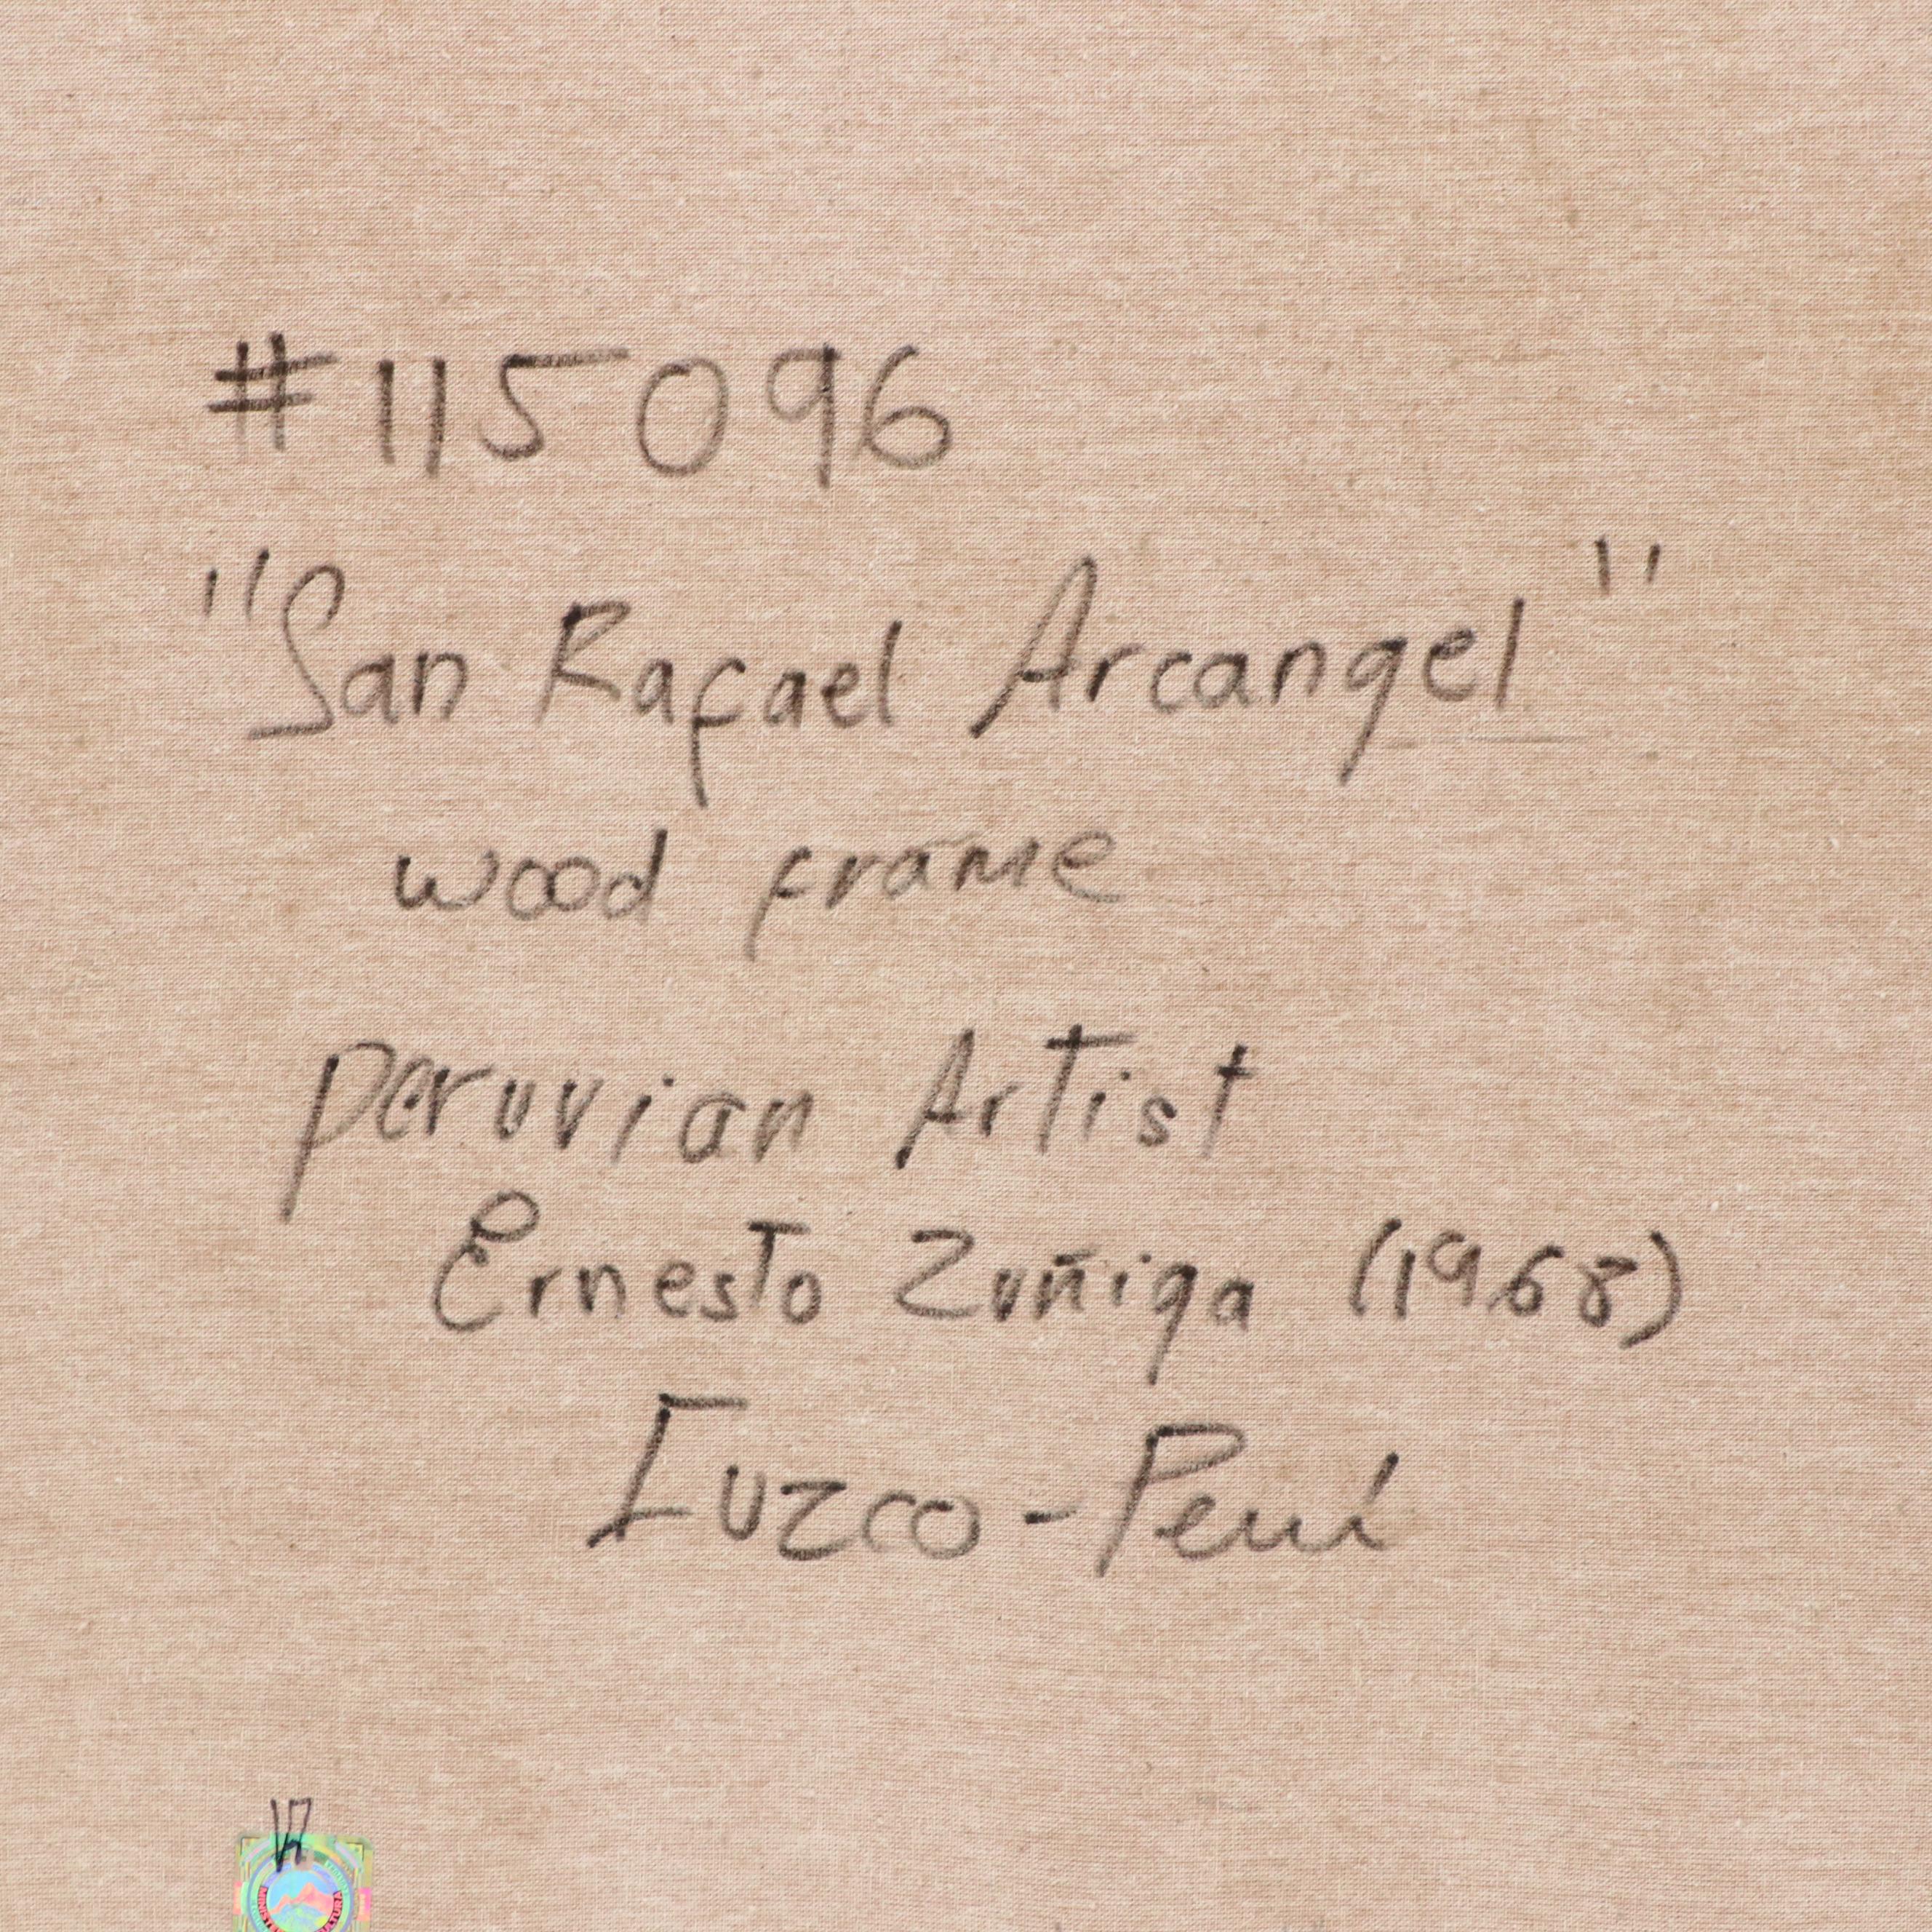 #115096
"San Rafael Arcangel"
wood frame
Peruvian Artist
Ernesto Zuñiga (1968)
Cuzco - Perú